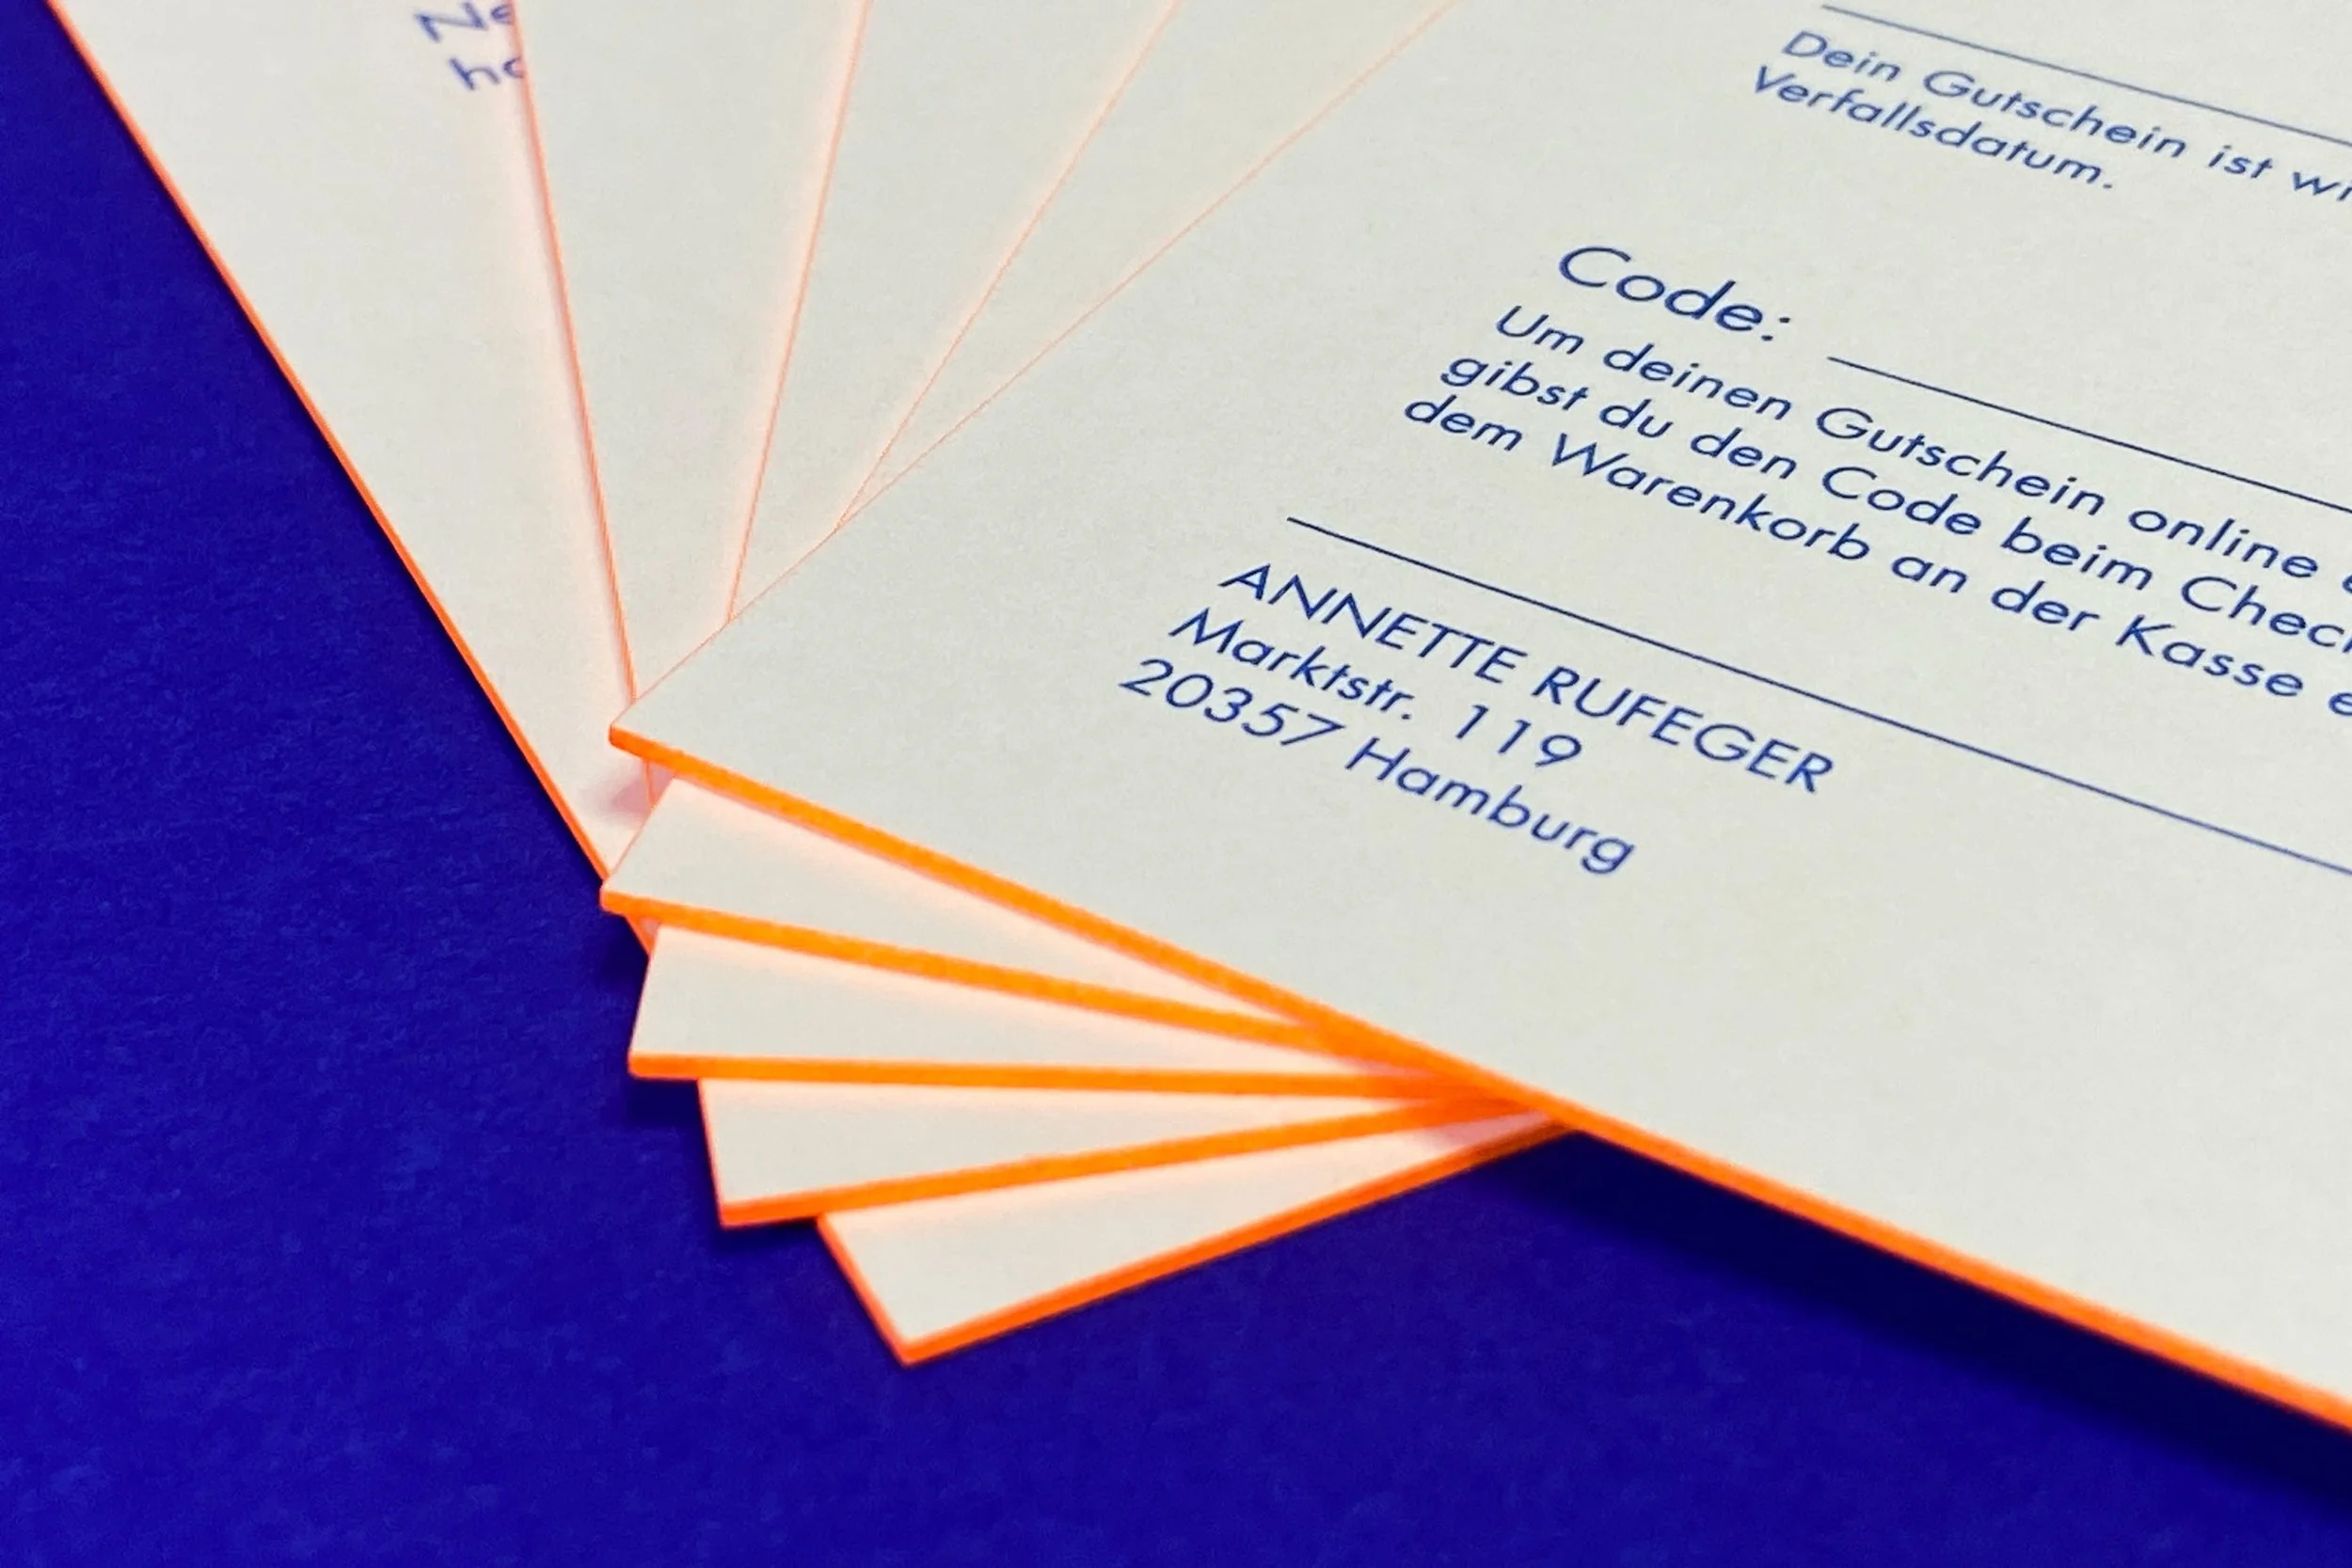 Dein Gutschein ist
Verfallsdatum.
Code:
Um deinen Gutschein online
gibst du den Code beim
dem Warenkorb an der Kasse
ANNETTE RUFEGER
Marktstr. 119
20357 Hamburg